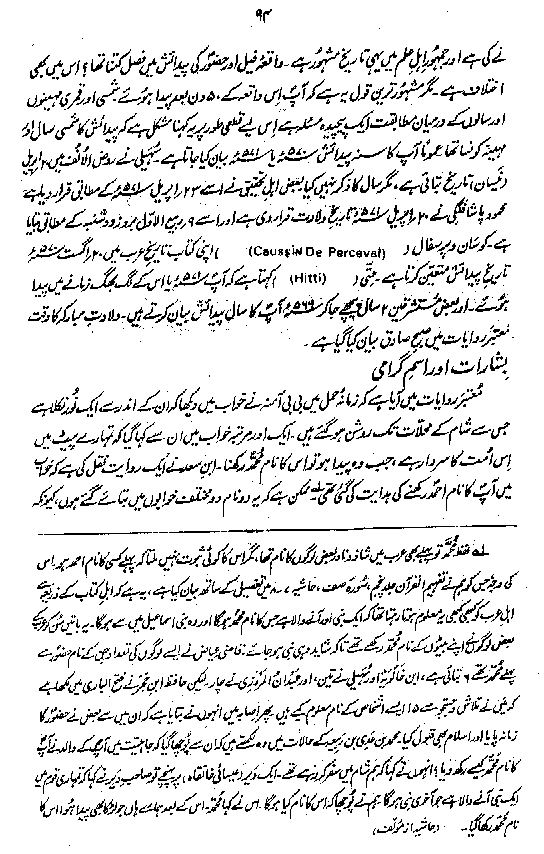 ۹۴
نے کی ہے اور جمہور اہل علم میں یہی تاریخ مشہور ہے۔ واقعۂ فیل اور حضورؐ کی پیدائش میں فصل کتنا تھا؟ اس میں بھی
اختلاف ہے۔ مگر مشہور ترین قول یہ ہے کہ آپؐ اس واقعہ کے ۵۰ دن بعد پیدا ہوئے۔ شمسی اور قمری مہینوں
اور سالوں کے درمیان مطابقت ایک پیچیدہ مسئلہ ہے اس لیے قطعی طور پر یہ کہنا مشکل ہے کہ پیدائش کا شمسی سال اور
مہینہ کونسا تھا عموماً آپ کا سنہ پیدائش ۵۷۰ء یا ۵۷۱ء بیان کیا جاتا ہے۔ سُہیلی نے روض الاُنف میں ۲۰ اپریل
(نیسان) تاریخ بتائی ہے، مگر سال کا ذکر نہیں کیا بعض اہل تحقیق نے اسے ۲۳ اپریل ۵۷۱ء کے مطابق قرار دیا ہے
محمود پاشا فلکی نے ۲۰ اپریل ۵۷۱ء تاریخ ولادت قرار دی ہے اور اسے ۹ ربیع الاول بروز دوشنبہ کے مطابق بتایا
ہے۔ کوسان دپرسفال (Caussin De Perceval) اپنی کتاب تاریخ عرب میں ۲۰ اگست ۵۷۰ء
تاریخ پیدائش متعین کرتا ہے۔ ہِٹّی (Hitti) کہتا ہے کہ آپؐ ۵۷۱ء یا اس کے لگ بھگ زمانے میں پیدا
ہوئے۔ اور بعض مستشرقین ۲ سال پیچھے جا کر ۵۶۹ء آپؐ کا سال پیدائش بیان کرتے ہیں۔ ولادت مبارکہ کا وقت
معتبر روایات میں صبح صادق بیان کیا گیا ہے۔
بشارات اور اسم گرامی
معتبر روایات میں آیا ہے کہ زمانۂ حمل میں بی بی آمنہ نے خواب میں دیکھا کہ ان کے اندر سے ایک نُور نکلا ہے
جس سے شام کے محلات تک روشن ہو گئے ہیں۔ ایک اور مرتبہ خواب میں ان سے کہا گیا کہ تمہارے پیٹ میں
اِس اُمت کا سردار ہے، جب وہ پیدا ہو تو اس کا نام محمّدؐ رکھنا۔ ابن سعد نے ایک روایت نقل کی ہے کہ خواب
میں آپؐ کا نام احمد رکھنے کی ہدایت کی گئی تھی۔ ممکن ہے کہ یہ دو نام دو مختلف خوابوں میں بتائے گئے ہوں، کیونکہ
لے لفظ محمّد تو پہلے بھی عرب میں شاذ و نادر بعض لوگوں کا نام تھا، مگر اس کا کوئی ثبوت نہیں ملتا کہ پہلے کسی کا نام احمد ہو۔ اس
کی وجہ جس کو ہم نے تفہیم القرآن جلد پنجم، سُورۂ صف، حاشیہ ۷-۸ میں تفصیل کے ساتھ بیان کیا ہے، یہ ہے کہ اہل کتاب کے ذریعے
اہل عرب کو کبھی کبھی یہ معلوم ہوتا رہتا تھا کہ ایک نبی اور آنے والا ہے جس کا نام محمّد ہوگا اور وہ بنی اسماعیل میں سے ہوگا۔ یہ باتیں سُن کر عرب کے
بعض لوگوں نے اپنے بیٹوں کے نام محمّد رکھے تھے تا کہ شاید وہی نبی ہو جائے۔ قاضی عیاض نے ایسے لوگوں کی تعداد جن کے نام حضورؐ سے
پہلے محمّد رکھے گئے ۶ بتائی ہے، ابن خالویہ اور سُہیلی نے تین، اور عبدان المروزی نے چار۔ لیکن حافظ ابن حجر نے فتح الباری میں لکھا ہے
کہ میں نے تلاش و جستجو سے ۱۵ ایسے اشخاص کے نام معلوم کیے ہیں۔ پھر اصابہ میں انہوں نے بتایا ہے کہ ان میں سے بعض نے حضورؐ کا
زمانہ پایا اور اسلام بھی قبول کیا۔ محمد بن عدی بن ربیعہ کے حالات میں وہ لکھتے ہیں کہ ان سے پُوچھا گیا کہ جاہلیت میں آپ کے والد نے آپ
کا نام محمّد کیسے رکھ دیا؟ انہوں نے کہا کہ ہم شام میں سفر کر رہے تھے۔ ایک دَیر (عیسائی خانقاہ) پر پہنچے تو صاحبِ دَیر نے کہا کہ تمہاری قوم میں
ایک نبی آنے والا ہے جو آخری نبی ہوگا۔ ہم نے پُوچھا کہ اس کا نام کیا ہوگا۔ اس نے کہا محمّد۔ اس کے بعد ہمارے ہاں جو لڑکا بھی پیدا ہوا اس کا
نام محمّد رکھا گیا۔ (حاشیہ از مؤلف)